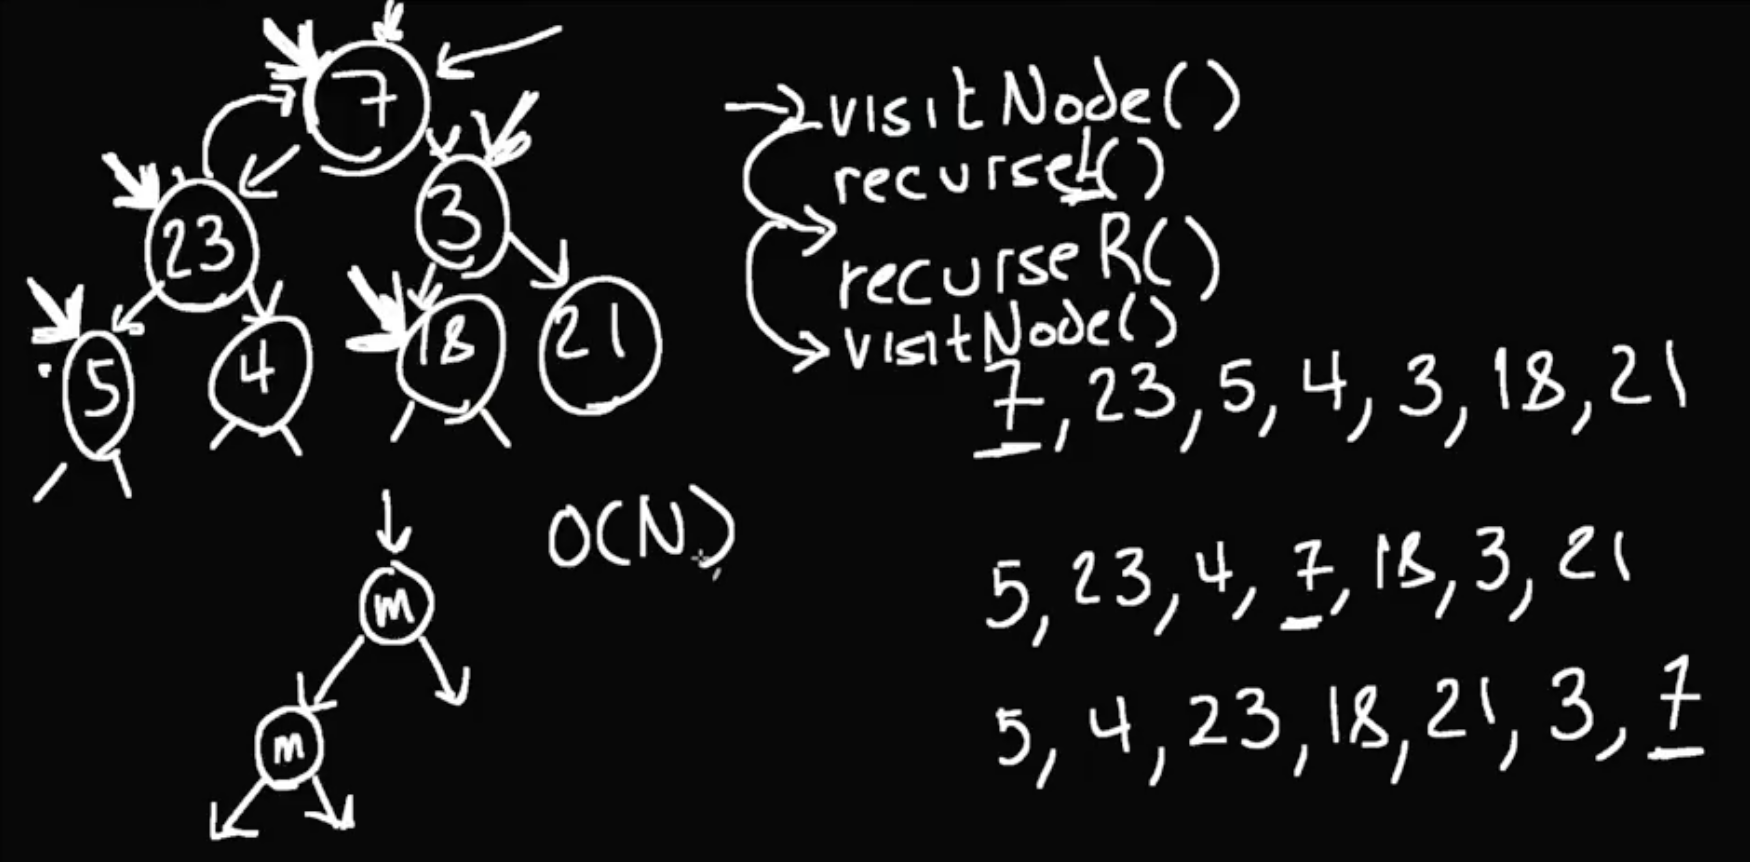 7
23
3
5
4
18
21
visitNode()
recurseL()
recurseR()
visitNode()
7, 23, 5, 4, 3, 18, 21
O(N)
5, 23, 4, 7, 18, 3, 21
m
5, 4, 23, 18, 21, 3, 7
m